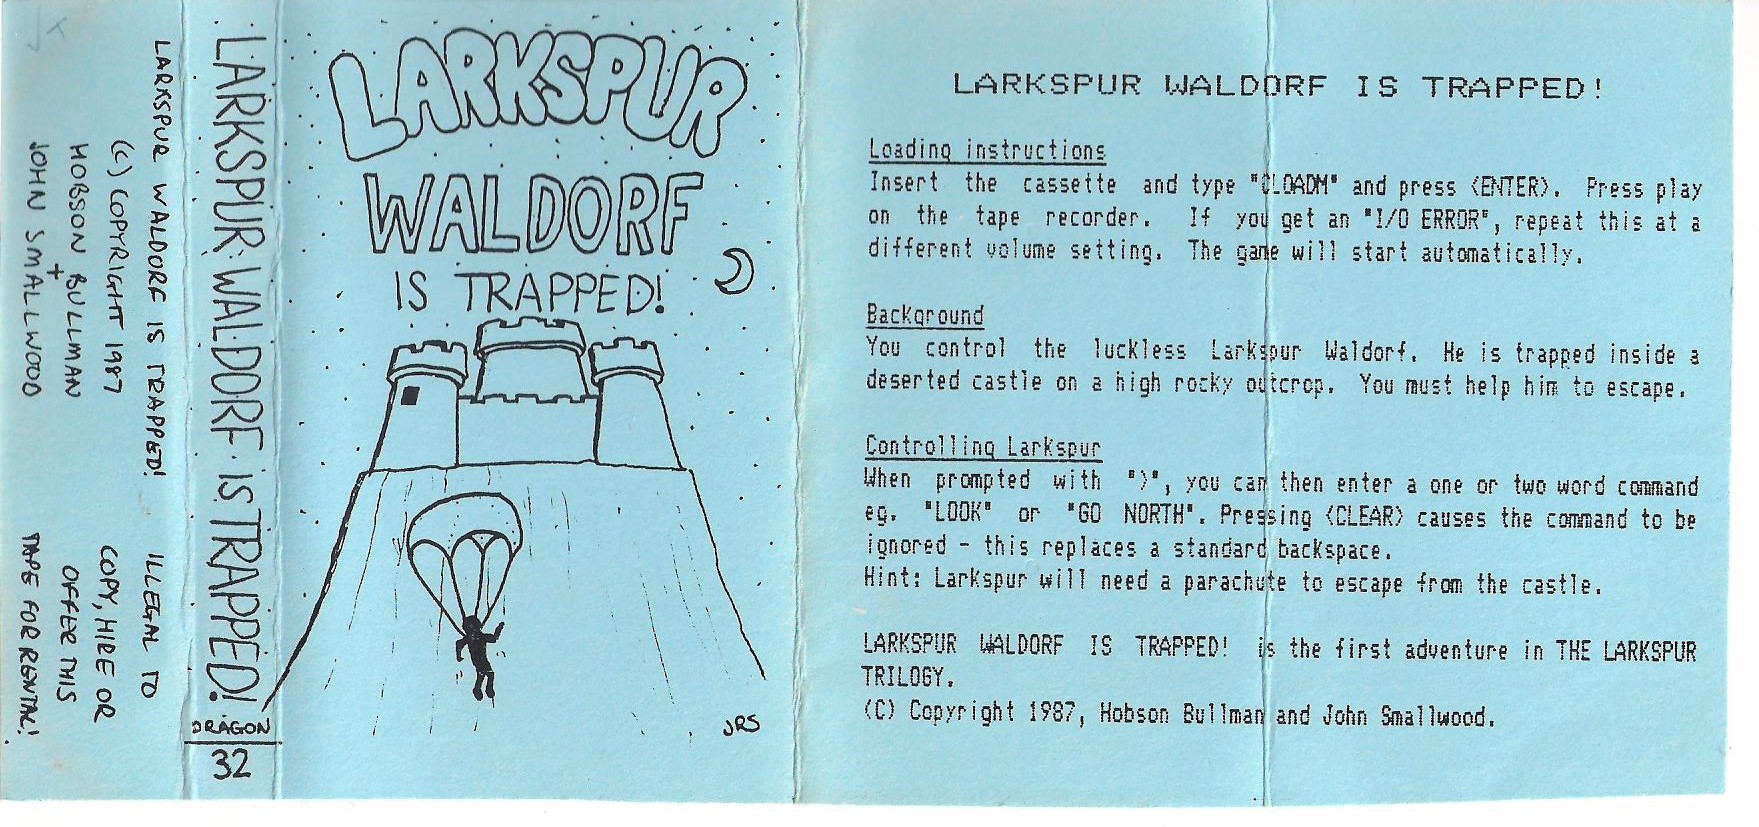 LARKSPUR WALDORF IS TRAPPED!
(C) COPYRIGHT 1987
HOBSON BULLMAN
+
JOHN SMALLWOOD
ILLEGAL TO
COPY, HIRE OR
OFFER THIS
TAPE FOR RENTAL!
LARKSPUR WALDORF IS TRAPPED!
DRAGON
32
LARKSPUR
WALDORF
IS TRAPPED!
JRS
LARKSPUR WALDORF IS TRAPPED!
Loading instructions
Insert the cassette and type "CLOADM" and press <ENTER>. Press play
on the tape recorder. If you get an "I/O ERROR", repeat this at a
different volume setting. The game will start automatically.
Background
You control the luckless Larkspur Waldorf. He is trapped inside a
deserted castle on a high rocky outcrop. You must help him to escape.
Controlling Larkspur
When prompted with ">", you can then enter a one or two word command
eg. "LOOK" or "GO NORTH". Pressing <CLEAR> causes the command to be
ignored - this replaces a standard backspace.
Hint: Larkspur will need a parachute to escape from the castle.
LARKSPUR WALDORF IS TRAPPED! is the first adventure in THE LARKSPUR
TRILOGY.
(C) Copyright 1987, Hobson Bullman and John Smallwood.